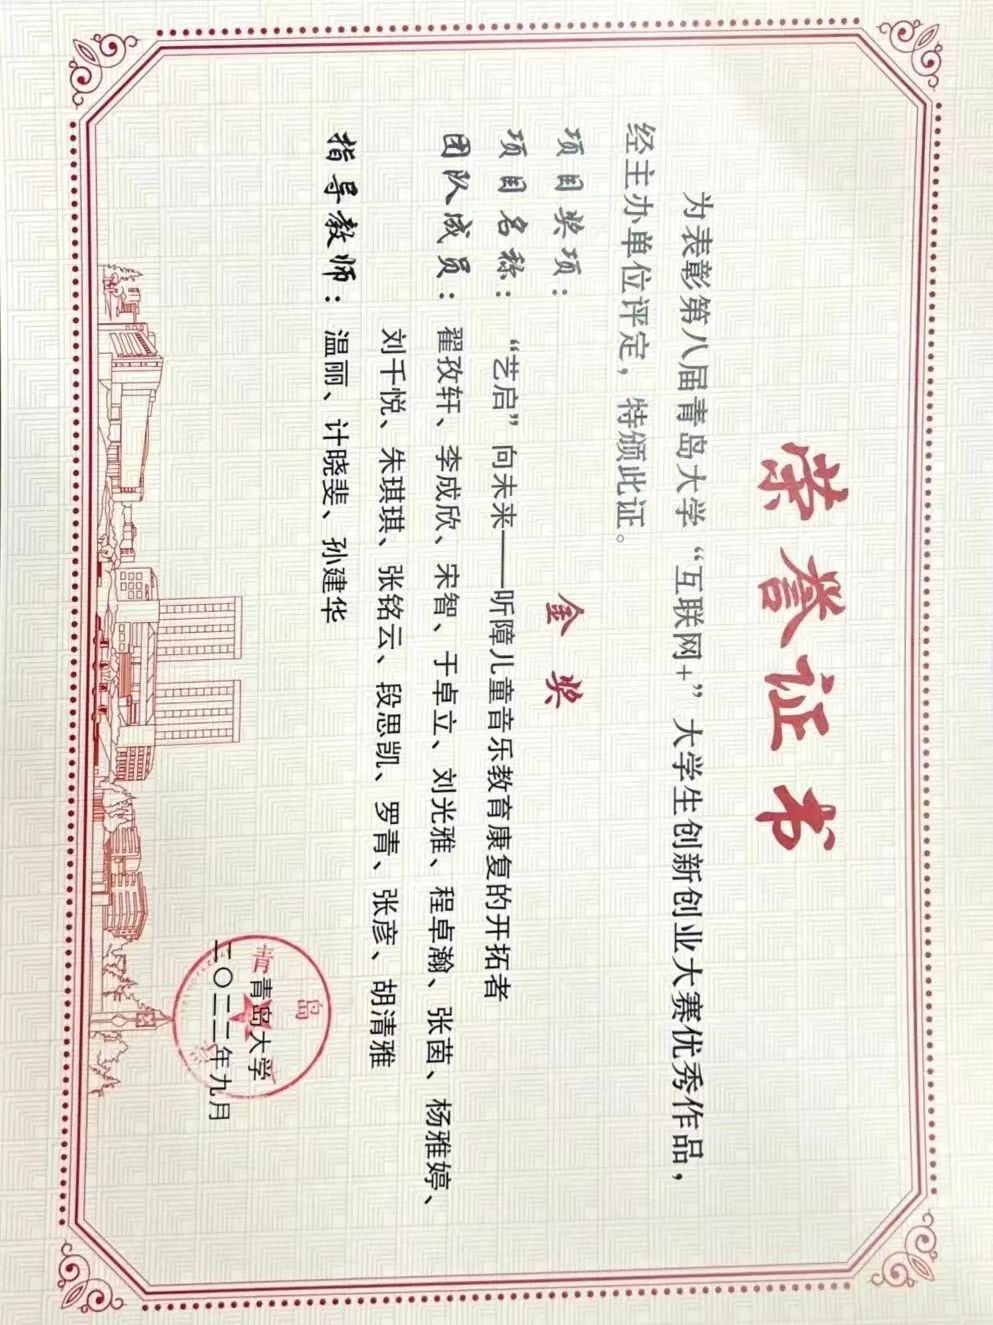 荣誉证书
为表彰第八届青岛大学“互联网+”大学生创新创业大赛优秀作品，
经主办单位评定，特颁此证。
项目奖项： 金奖
项目名称：“艺启”向未来——听障儿童音乐教育康复的开拓者
团队成员：翟孜轩、李成欣、宋智、于卓立、刘光雅、程卓瀚、张茵、杨雅婷、
刘千悦、朱琪琪、张铭云、段思凯、罗青、张彦、胡清雅
指导教师：温丽、计晓斐、孙建华
青岛大学
二〇二二年九月
青岛